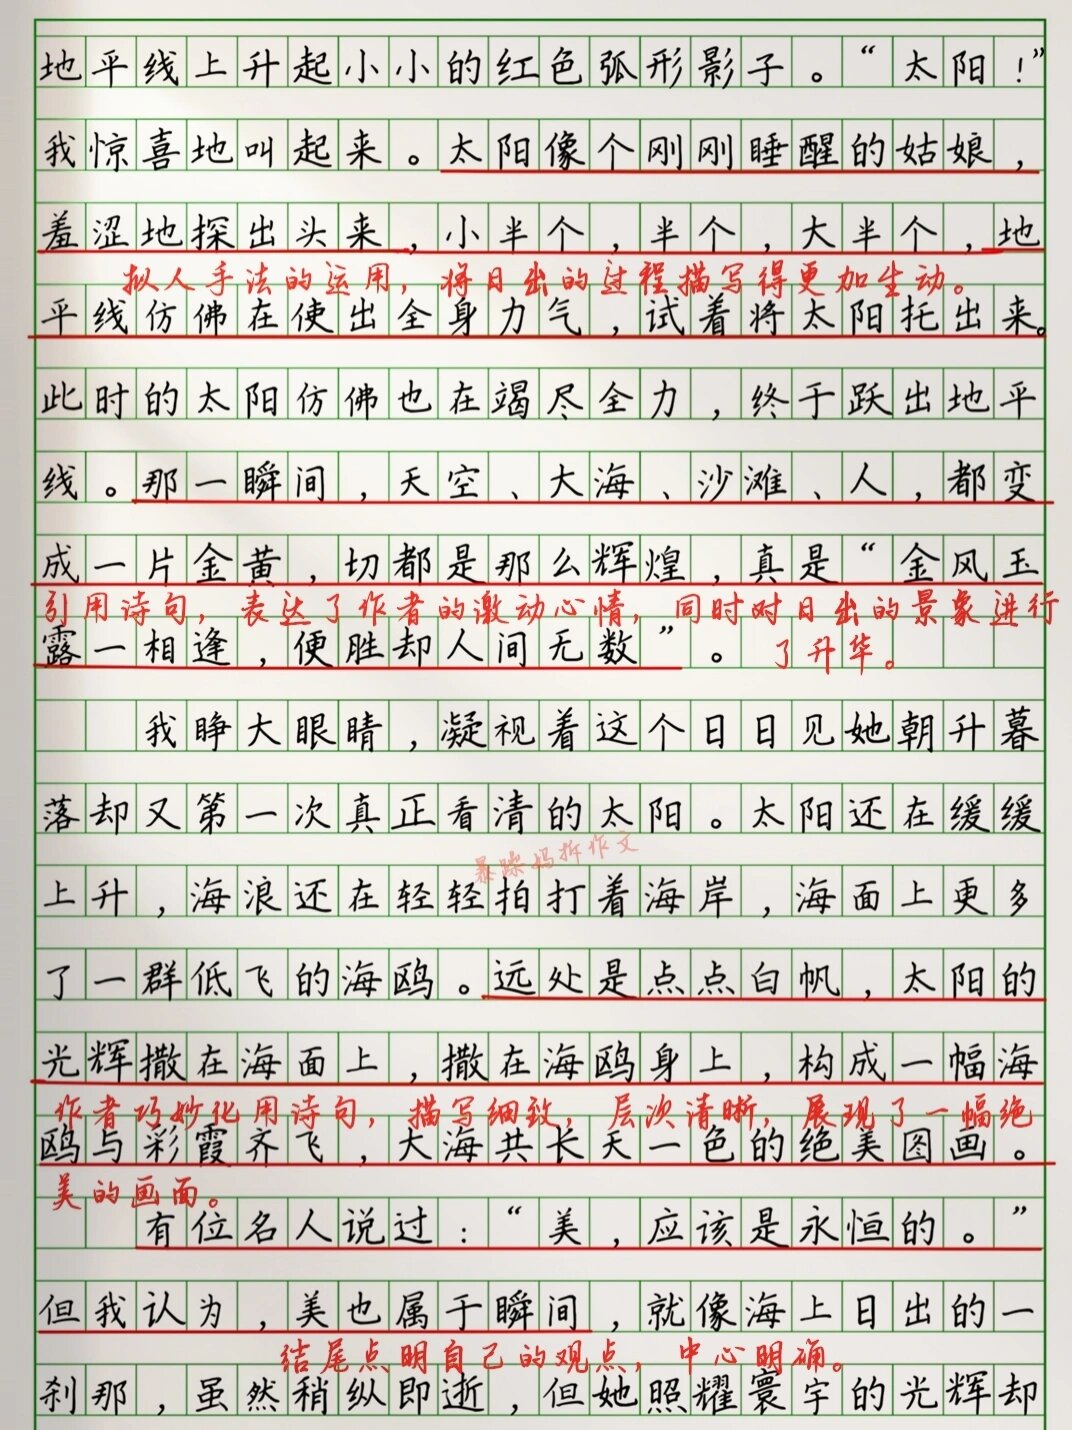 地平线上升起小小的红色弧形影子。“太阳！”
我惊喜地叫起来。太阳像个刚刚睡醒的姑娘，
羞涩地探出头来，小半个，半个，大半个，地
拟人手法的运用，将日出的过程描写得更加生动。
平线仿佛在使出全身力气，试着将太阳托出来。
此时的太阳仿佛也在竭尽全力，终于跃出地平
线。那一瞬间，天空、大海、沙滩、人，都变
成一片金黄，切都是那么辉煌，真是“金风玉
引用诗句，表达了作者的激动心情，同时对日出的景象进行
露一相逢，便胜却人间无数”。
了升华。
我睁大眼睛，凝视着这个日日见她朝升暮
落却又第一次真正看清的太阳。太阳还在缓缓
暴躁妈拆作文
上升，海浪还在轻轻拍打着海岸，海面上更多
了一群低飞的海鸥。远处是点点白帆，太阳的
光辉撒在海面上，撒在海鸥身上，构成一幅海
作者巧妙化用诗句，描写细致，层次清晰，展现了一幅绝
鸥与彩霞齐飞，大海共长天一色的绝美图画。
美的画面。
有位名人说过：“美，应该是永恒的。”
但我认为，美也属于瞬间，就像海上日出的一
结尾点明自己的观点，中心明确。
刹那，虽然稍纵即逝，但她照耀寰宇的光辉却